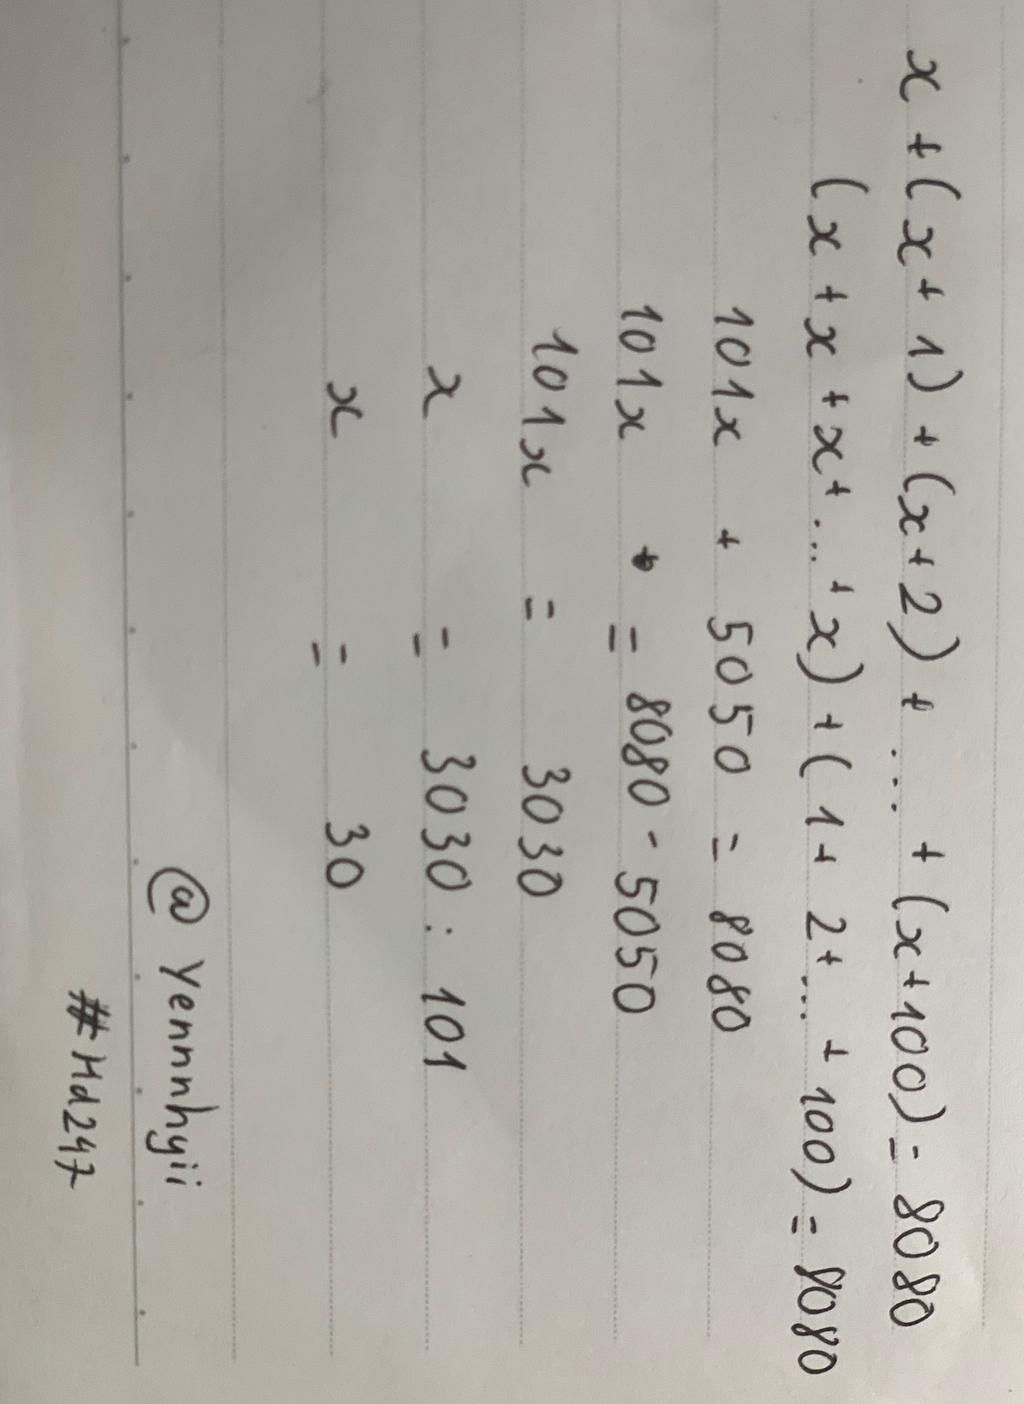 x + (x + 1) + (x + 2) + ... + (x + 100) = 8080
(x + x + x + ... + x) + (1 + 2 + ... + 100) = 8080
101x + 5050 = 8080
101x = 8080 - 5050
101x = 3030
x = 3030 : 101
x = 30
@ Yennnhyii
#Hd247